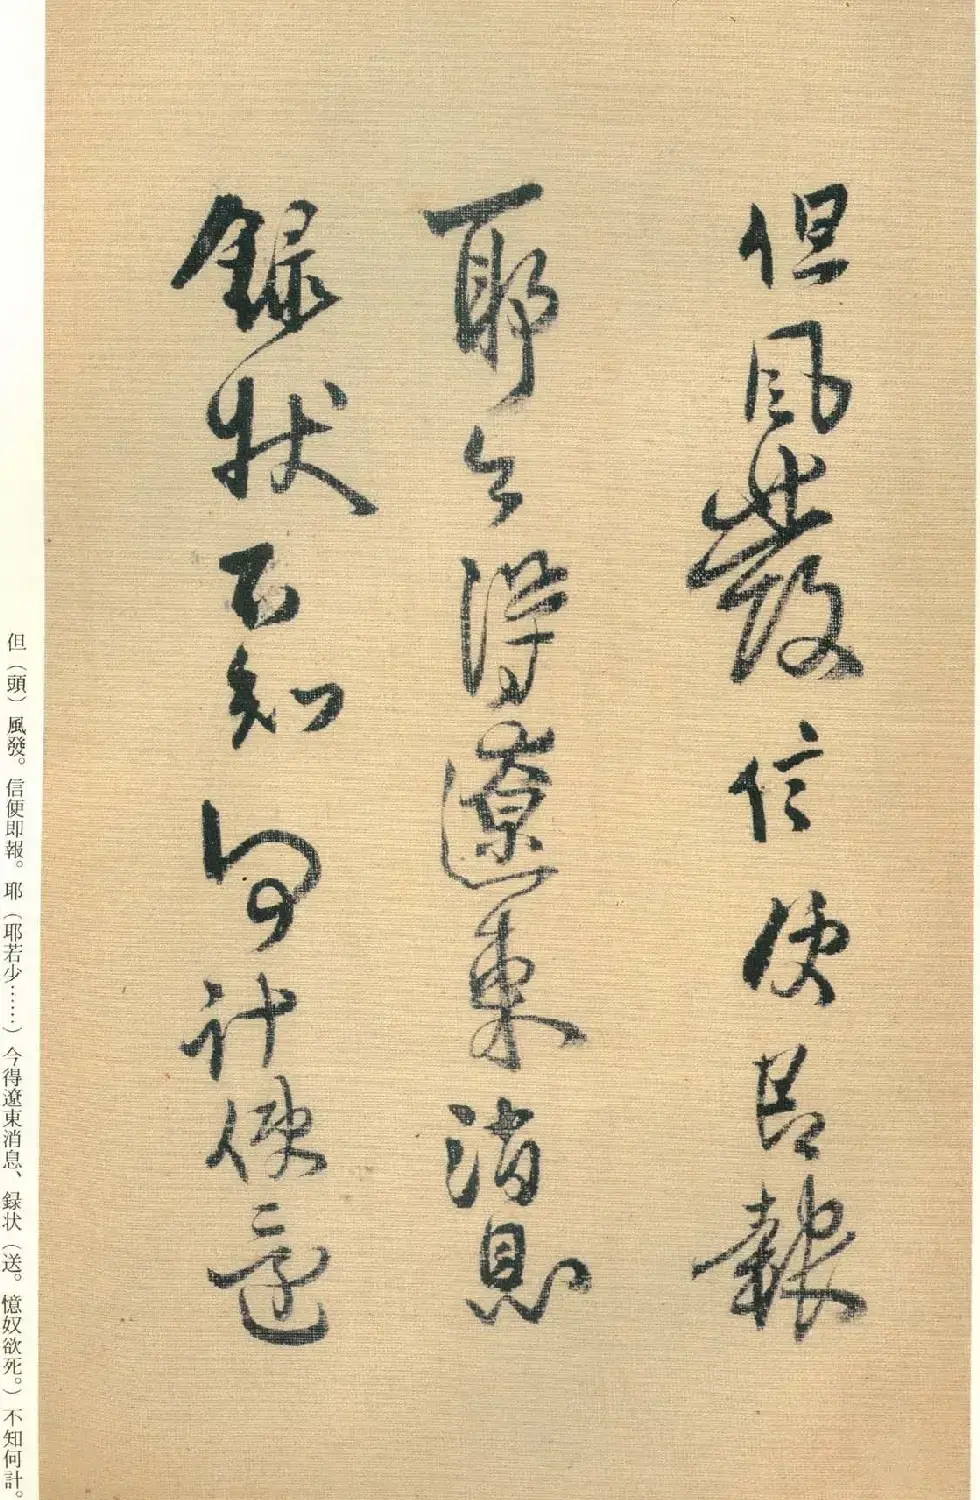 但風發信便即報
耶今得遼東消息
錄狀不知何計使還
但（頭）風發。信便即報。耶（耶若少……）今得遼東消息、録状（送。憶奴欲死。）不知何計。